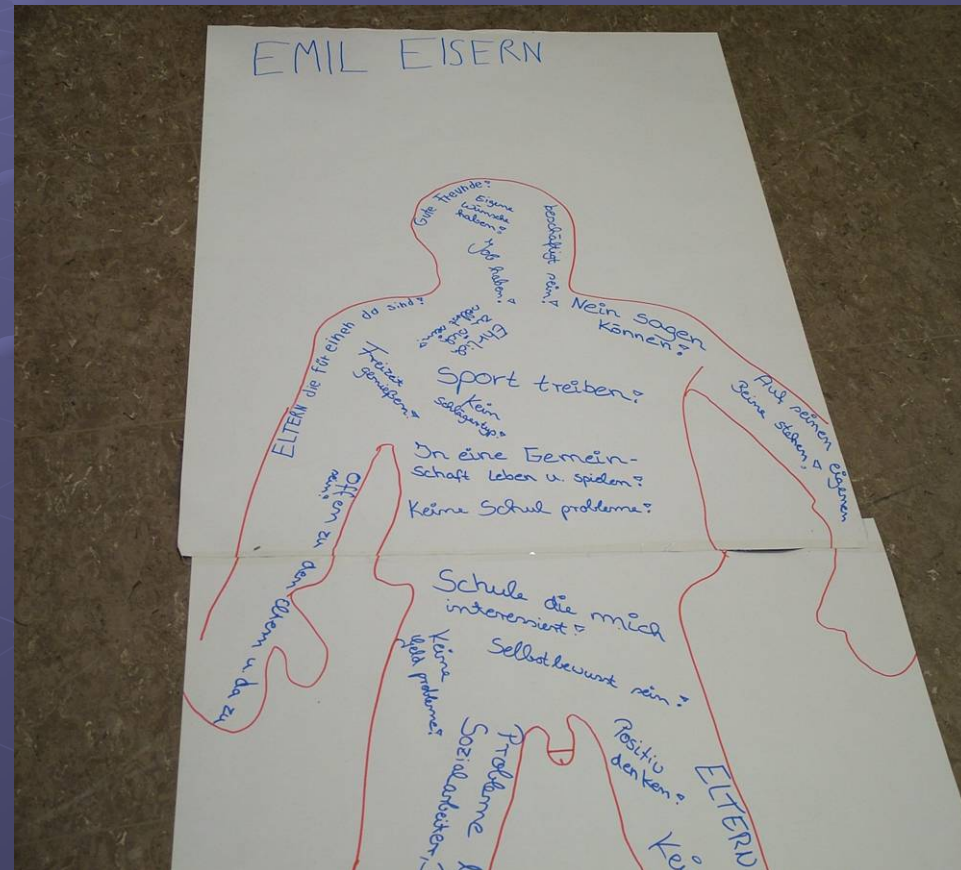 EMIL EISERN
Gute Freunde!
Eigene
Wünsche
haben!
beschäftigt sein!
Job haben!
Nein sagen
können!
ELTERN die für einen da sind!
Freizeit
genießen!
Sport treiben!
Kein
Schlägertyp!
Auf seinen eigenen
Beine stehen!
In eine Gemein-
schaft leben u. spielen!
Keine Schul probleme!
Offen zu den Eltern u. da zu
sein!
Schule die mich
interessiert!
Selbstbewusst sein!
Keine
Geld probleme!
Probleme
Sozialarbeiter,
Positiv
denken!
ELTERN